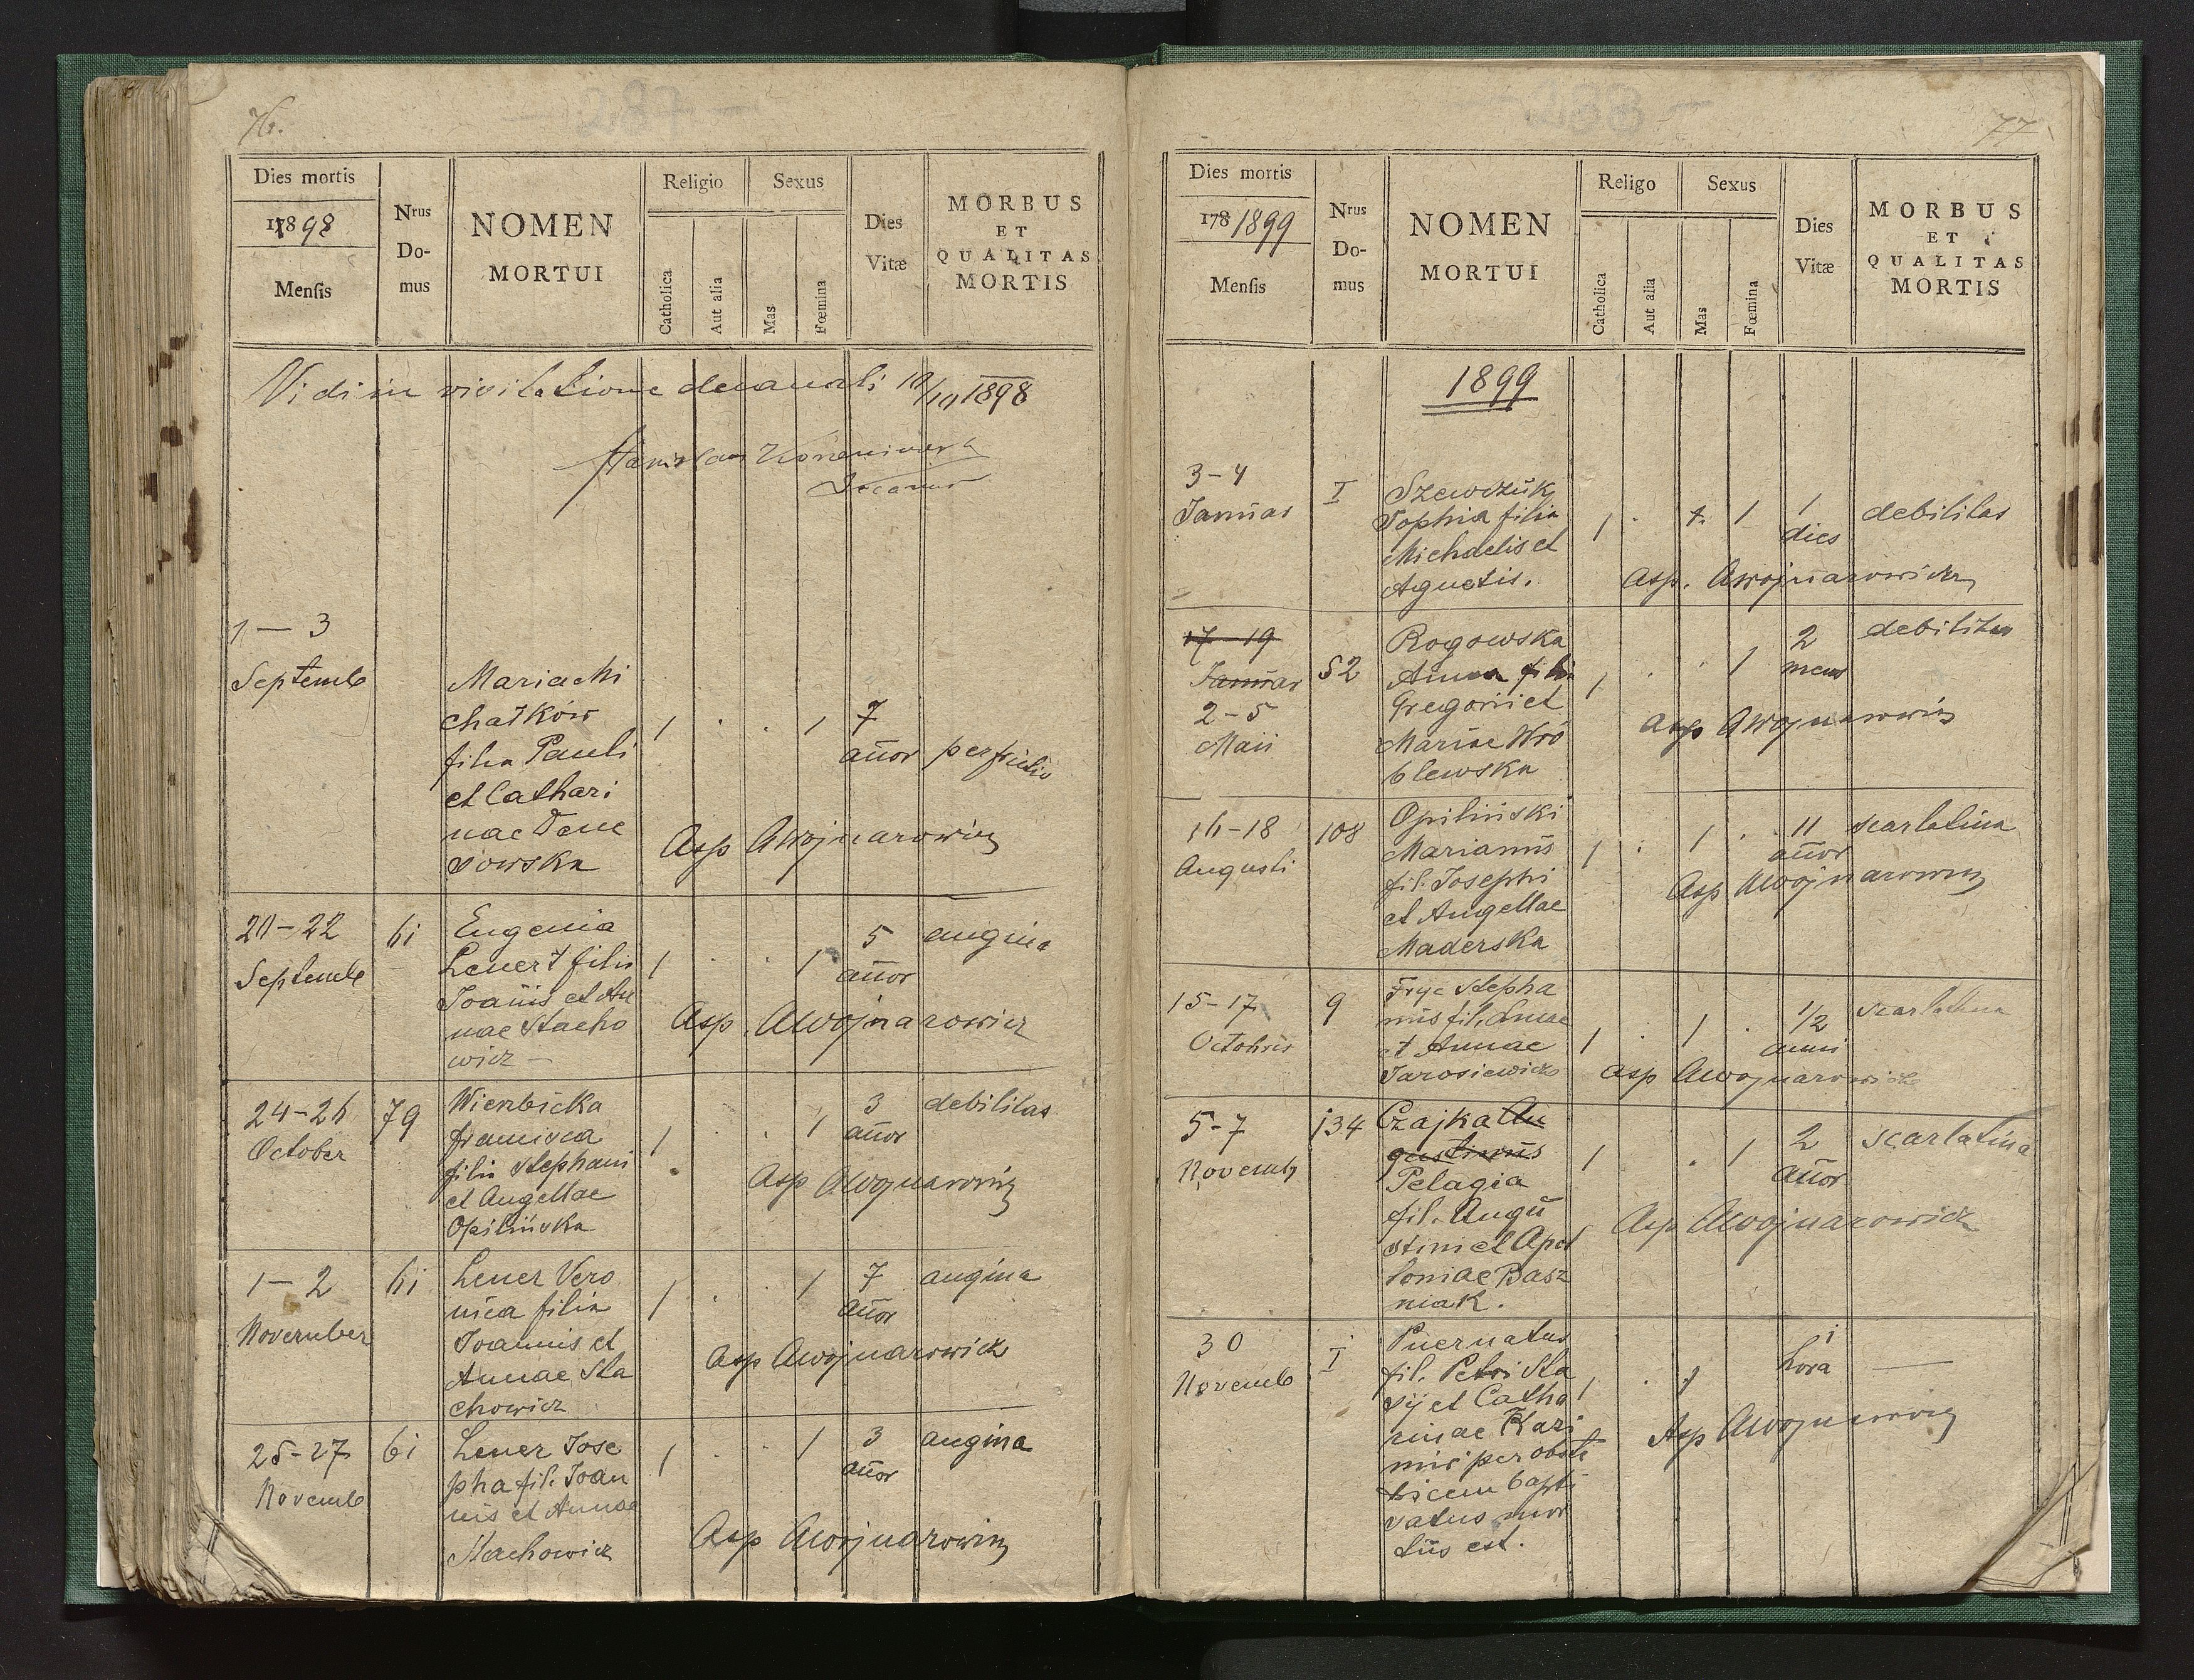 76.
Dies mortis
1898
Mensis
Nrus
Do-
mus
NOMEN
MORTUI
Religio
Catholica
Aut alia
Sexus
Mas
Fœmina
Dies
Vitæ
MORBUS
ET
QUALITAS
MORTIS
Vidi in visitatione decanali 1898
1 — 3
Septemb
Maria Mi
chałków
filia Pauli
et Cathari
nae Dene
sowska
1 . . 1
7
añor
perfrictio
Asp AWojnarowicz
20-22
Septemb
61
Eugenia
Lener filia
Joañis et An
nae Stacho
wicz —
1 . . 1
5
añor
angina
Asp. AWojnarowicz
24-26
October
79
Wierzbicka
francisca
filia Stephani
et Angellae
Opilińska
1 . . 1
3
añor
debilitas
Asp AWojnarowicz
1 — 2
November
61
Lener Vero
nica filia
Joannis et
Annae Sta
chowicz
1 . . 1
7
añor
angina
Asp AWojnarowicz
25-27
Novemb
61
Lener Jose
pha fil. Joan
nis et Annae
Stachowicz
1 . . 1
3
añor
angina
Asp AWojnarowicz
77
Dies mortis
178 1899
Mensis
Nrus
Do-
mus
NOMEN
MORTUI
Religo
Catholica
Aut alia
Sexus
Mas
Fœmina
Dies
Vitæ
MORBUS
ET
QUALITAS
MORTIS
1899
3-4
Januar
I
Szewczŭk
Sophia filia
Michaelis et
Agnetis.
1 . 1. 1
1
dies
debilitas
Asp. AWojnarowicz
17-19
Januar
2-5
Maii
52
Rogowska
Anna filia
Gregorii et
Mariae Wró
blewska
1 . . 1
2
mens
debilitas
Asp AWojnarowicz
16-18
Augusti
108
Opiliński
Marianŭs
fil. Josephi
et Angellae
Maderska
1 . 1 .
11
añor
scarlatina
Asp AWojnarowicz
15-17
Octobris
9
Fryc Stepha
nŭs fil. Lucae
et Annae
Jarosiewicz
1 . 1 .
1/2
anni
scarlatina
Asp AWojnarowicz
5-7
Novemb
134
Czajka Au
gustinŭs
Pelagia
fil. Augŭ
stini et Apol
loniae Basz
niak.
1 . 1
2
añor
scarlatina
Asp AWojnarowicz
30
Novemb
I
Puer natus
fil. Petri Sta
sij et Catha
rinae Kazi
mir per obste
tricem bapti
satus mor
tŭs est.
1 . 1
1
hora
—
Asp AWojnarowicz